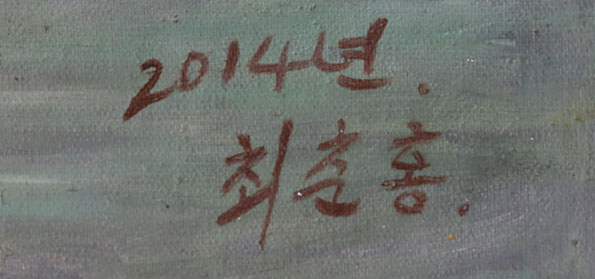 2014년.
최춘홍.